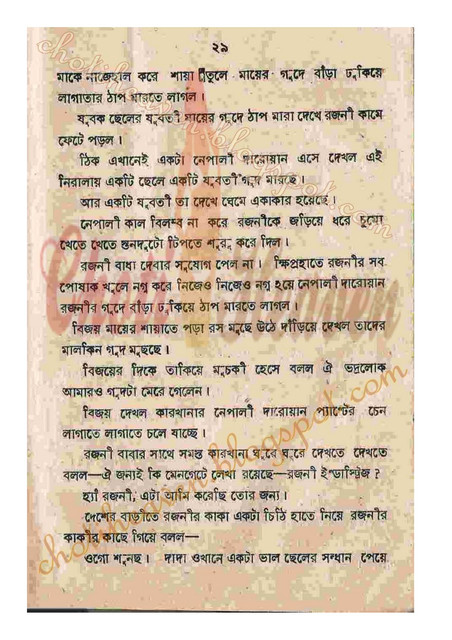 ২৯
মাকে নাজেহাল করে শায়া তুলে মায়ের গুদে বাঁড়া ঢুকিয়ে
লাগাতার ঠাপ মারতে লাগল।
যুবক ছেলের যুবতী মায়ের গুদে ঠাপ মারা দেখে রজনী কামে
ফেটে পড়ল।
ঠিক এখানেই একটা নেপালী দারোয়ান এসে দেখল এই
নিরালায় একটি ছেলে একটি যুবতী গুদ মারছে।
আর একটি যুবতী তা দেখে ঘেমে একাকার হয়েছে।
নেপালী কাল বিলম্ব না করে রজনীকে জড়িয়ে ধরে চুমো
খেতে খেতে স্তনদুটো টিপতে শুরু করে দিল।
রজনী বাধা দেবার সুযোগ পেল না। ক্ষিপ্রহাতে রজনীর সব
পোষাক খুলে নগ্ন করে নিজেও নিজেও নগ্ন হয়ে নেপালী দারোয়ান
রজনীর গুদে বাঁড়া ঢুকিয়ে ঠাপ মারতে লাগল।
বিজয় মায়ের শায়াতে পড়া রস মুছে উঠে দাঁড়িয়ে দেখল তাদের
মালকিন গুদ মুছছে।
বিজয়ের দিকে তাকিয়ে মুচকী হেসে বলল ঐ ভদ্রলোক
আমারও গুদটা মেরে গেলেন।
বিজয় দেখল কারখানার নেপালী দারোয়ান প্যান্টের চেন
লাগাতে লাগাতে চলে যাচ্ছে।
রজনী বাবার সাথে সমস্ত কারখানা ঘুরে ঘুরে দেখতে দেখতে
বলল—ঐ জন্যই কি মেনগেটে লেখা রয়েছে—রজনী ইন্ডাস্ট্রিজ ?
হ্যাঁ রজনী, এটা আমি করেছি তোর জন্য।
দেশের বাড়ীতে রজনীর কাকা একটা চিঠি হাতে নিয়ে রজনীর
কাকীর কাছে গিয়ে বলল—
ওগো শুনছ। দাদা ওখানে একটা ভাল ছেলের সন্ধান পেয়ে